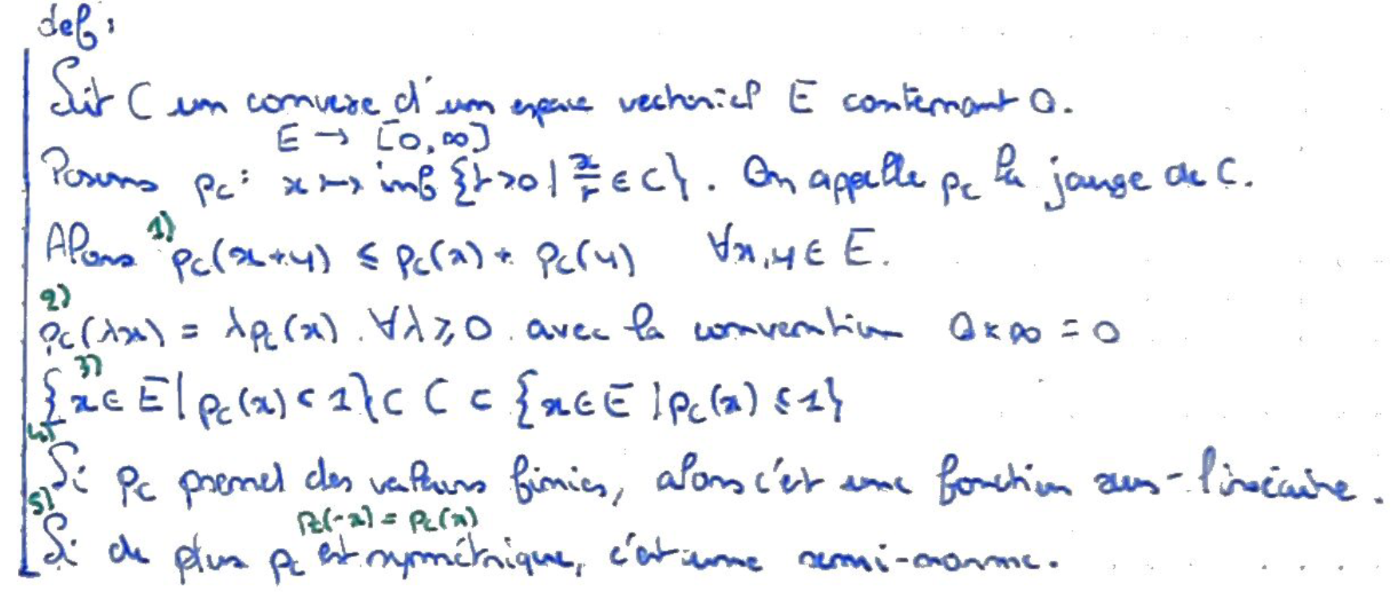 def:
Soit C un convexe d'un espace vectoriel E contenant 0.
E → [0, ∞]
Posons p_C : x ↦ inf {r > 0 | x/r ∈ C}. On appelle p_C la jauge de C.
Alors 1) p_C(x+y) ≤ p_C(x) + p_C(y) ∀x,y ∈ E.
2) p_C(λx) = λp_C(x). ∀λ ≥ 0. avec la convention 0 × ∞ = 0
3) {x ∈ E | p_C(x) < 1} ⊂ C ⊂ {x ∈ E | p_C(x) ≤ 1}
4) Si p_C prend des valeurs finies, alors c'est une fonction sous-linéaire.
p_C(-x) = p_C(x)
5) Si de plus p_C est symétrique, c'est une semi-norme.